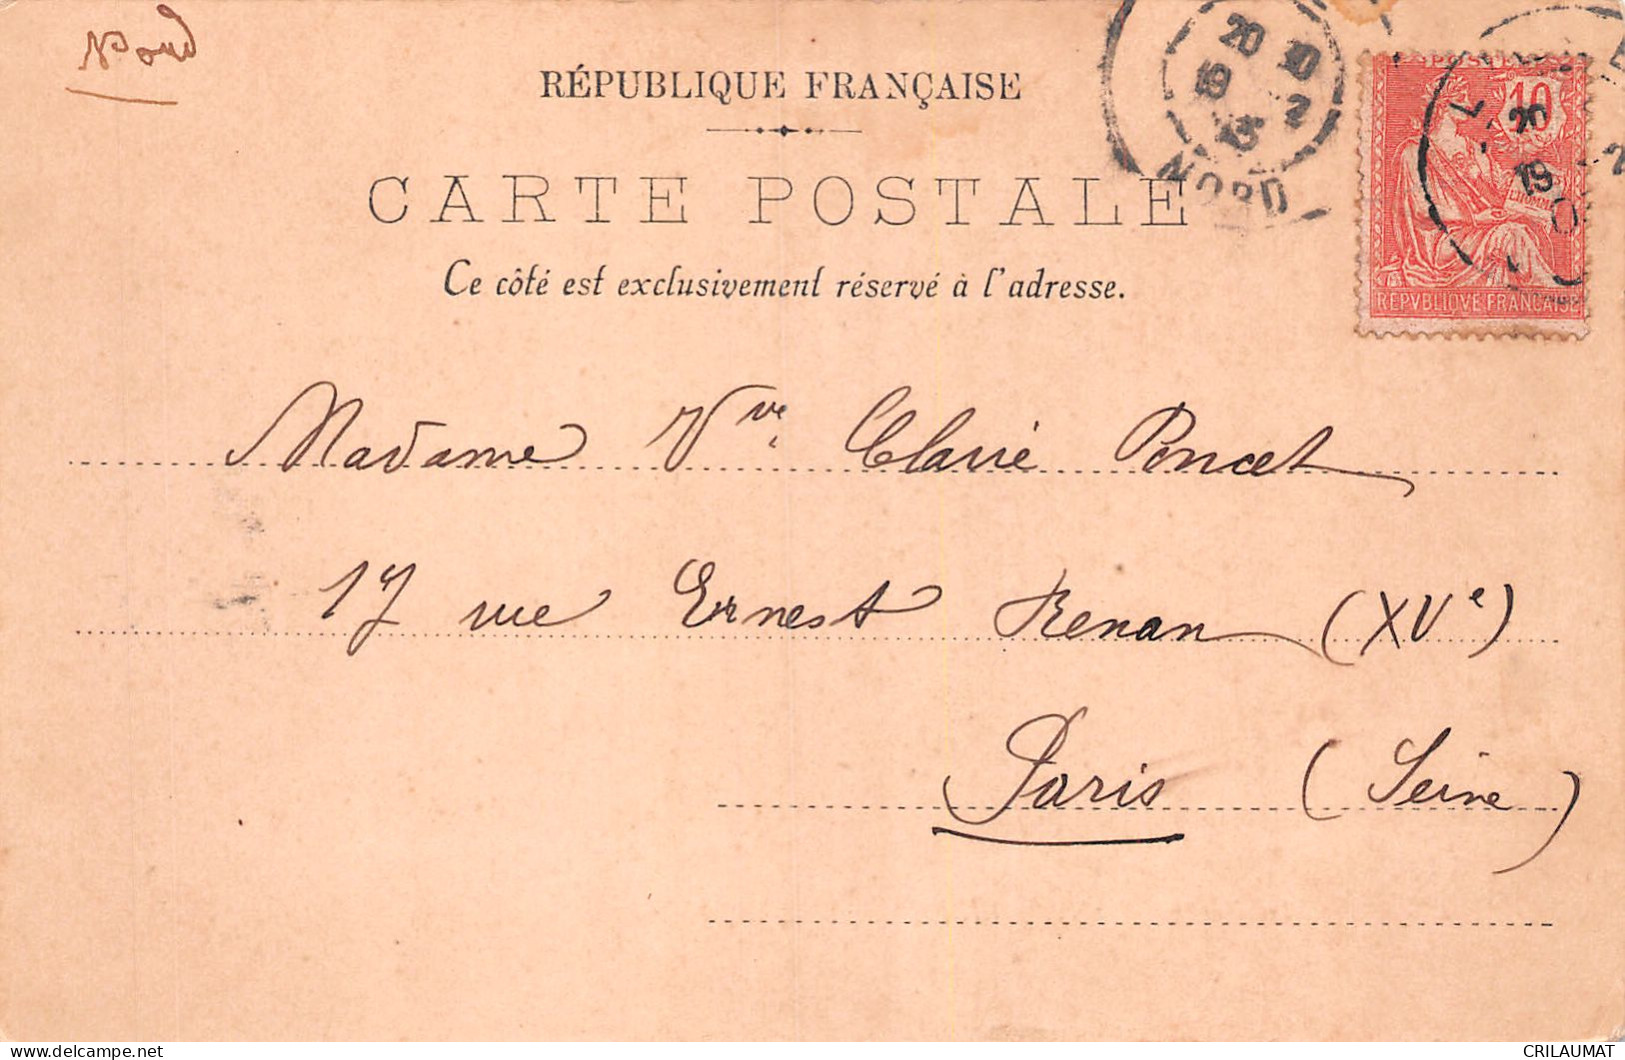 Nord
RÉPUBLIQUE FRANÇAISE
CARTE POSTALE
Ce côté est exclusivement réservé à l'adresse.
20 10
19 2
NORD
10
20
19 2
L'HOMME
REPVBLIQVE FRANÇAISE
Madame Vve Clarié Poncet
17 rue Ernest Renan (XVe)
Paris (Seine)
CRILAUMAT